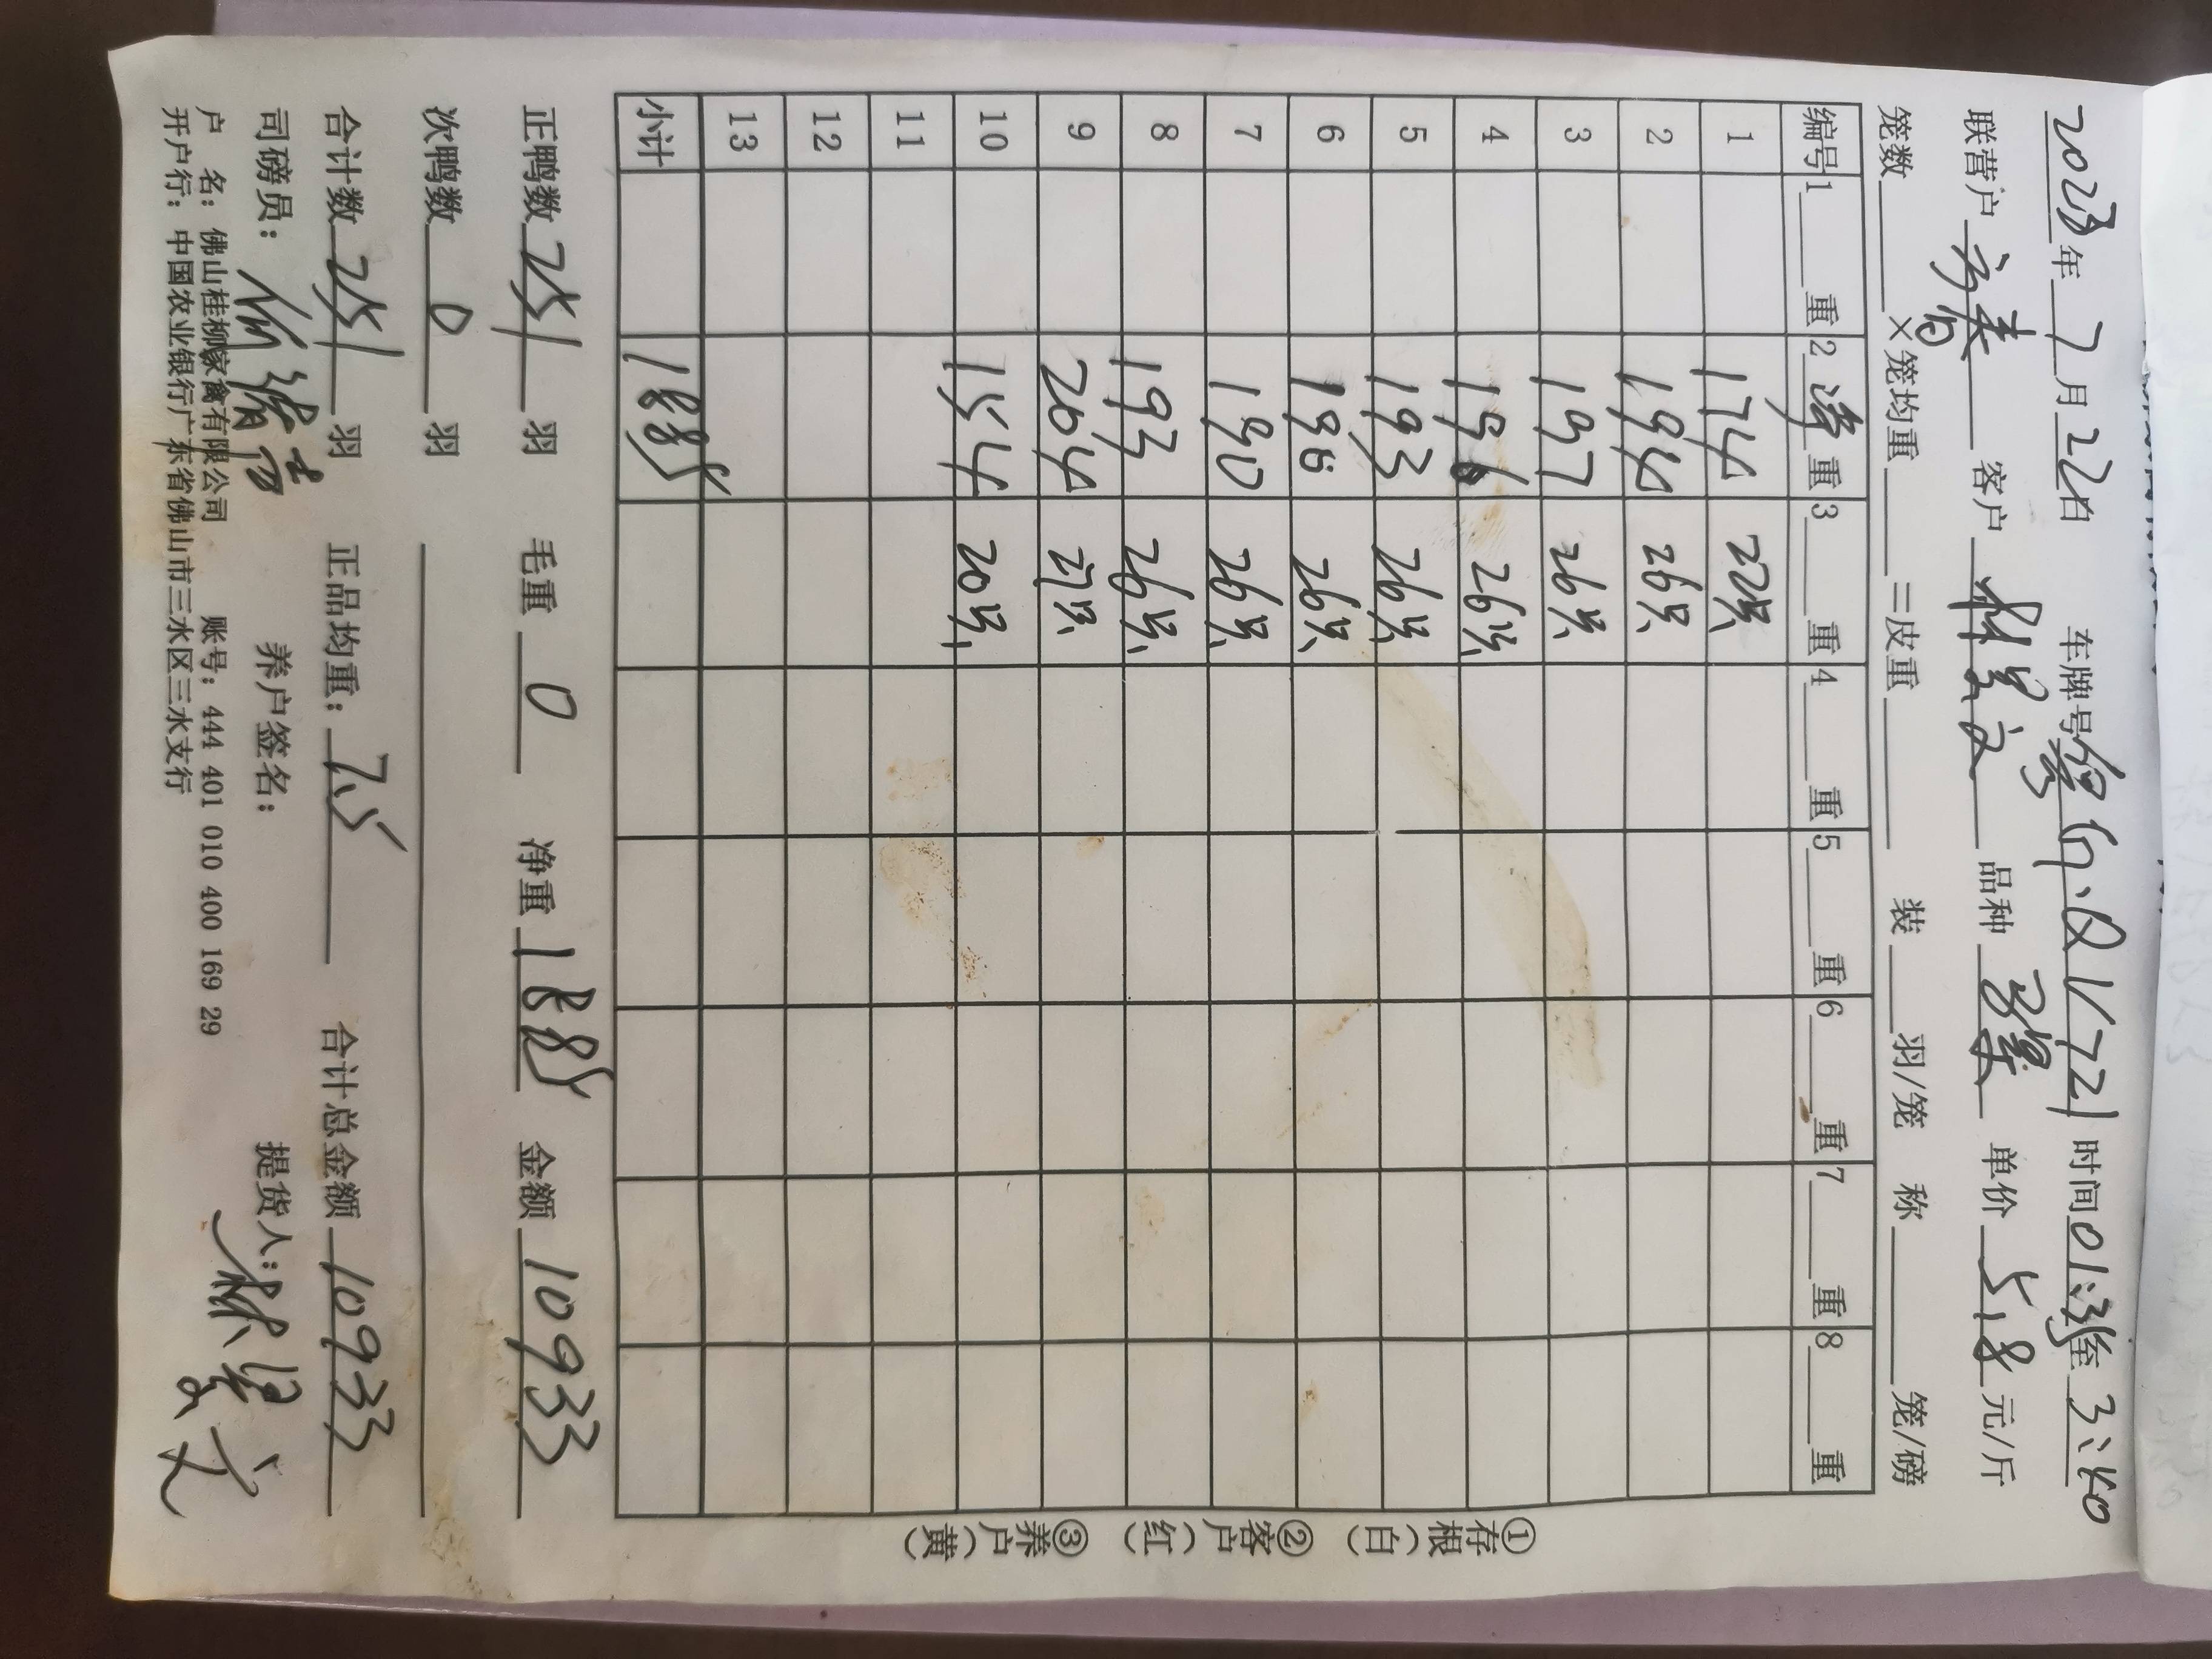 2023年7月22日 车牌号 时间 至3:40
联营户 客户 品种 单价5.8元/斤
笼数 ×笼均重 =皮重 装 羽/笼 称 笼/磅
编号 1 重 2净重 3 重 4 重 5 重 6 重 7 重 8 重
1 174 22只
2 194 26只
3 197 26只
4 196 26只
5 193 26只
6 26只
7 190 26只
8 193 26只
9 204 27只
10 154 20只
11
12
13
小计 1885
①存根(白) ②客户(红) ③养户(黄)
正鸭数251羽 毛重0 净重1885 金额10933
次鸭数0羽
合计数251羽 正品均重:7.5 合计总金额10933
司磅员: 养户签名: 提货人:
户 名:佛山桂柳家禽有限公司 账号:444 401 010 400 169 29
开户行:中国农业银行广东省佛山市三水区三水支行